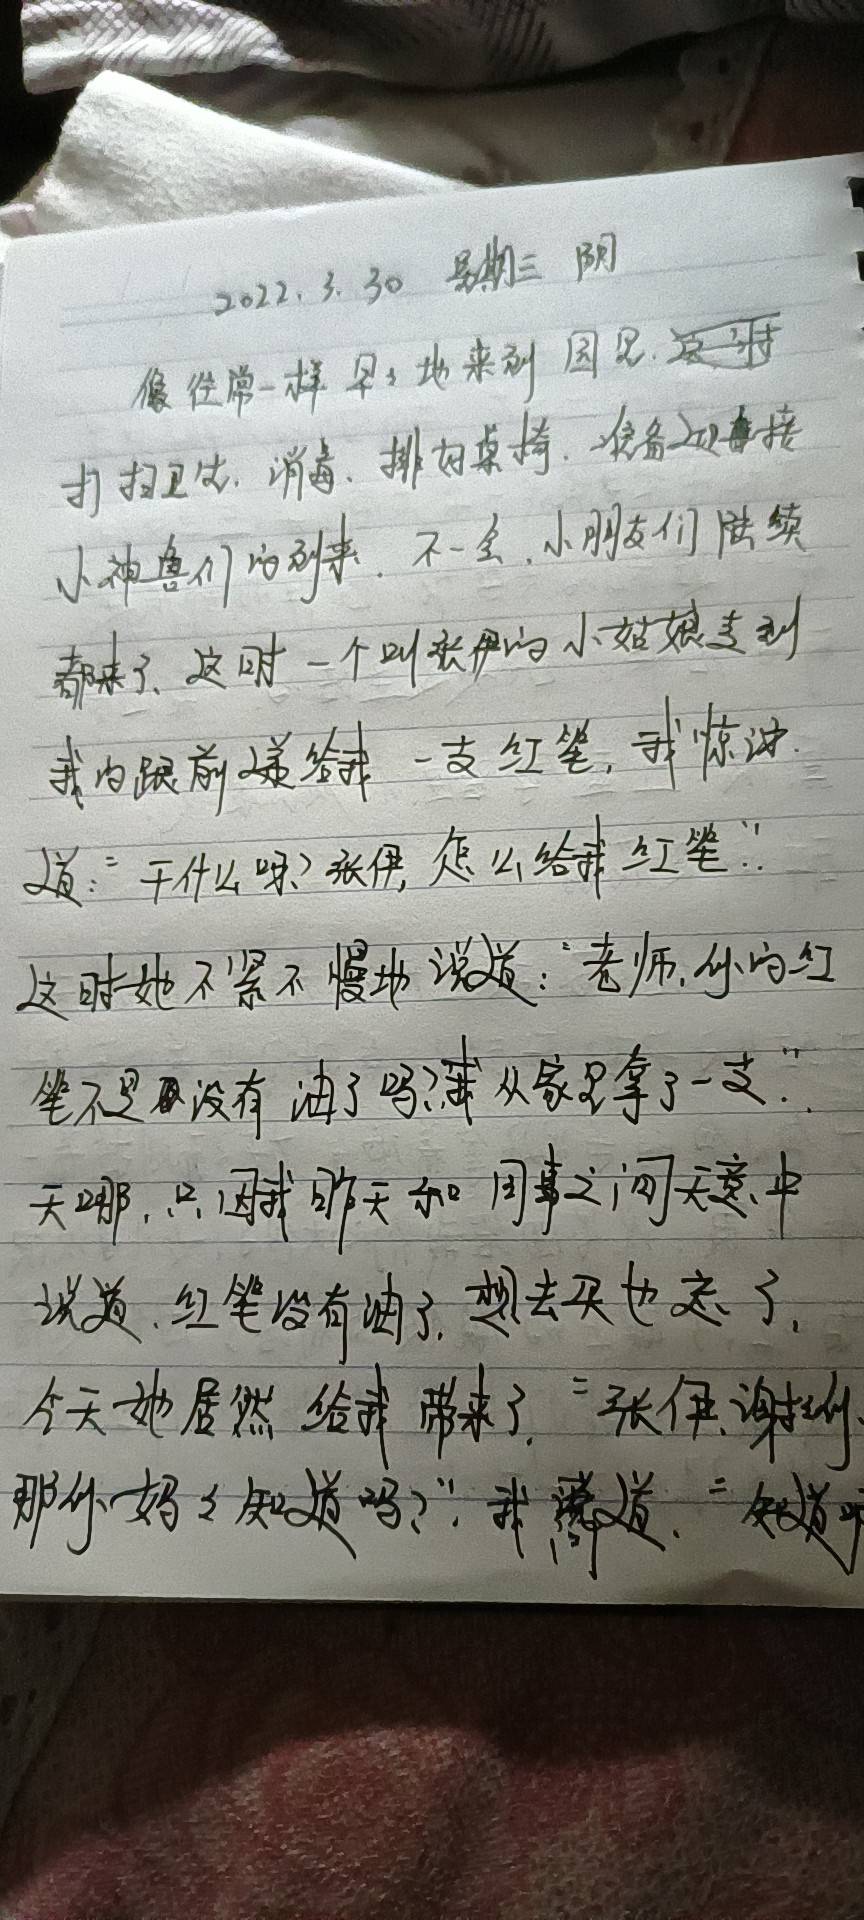 2022.3.30 星期三 阴
像往常一样早早地来到园里.
打扫卫生.消毒.排好桌椅.准备迎接
小神兽们的到来.不一会.小朋友们陆续
都来了.这时一个叫张伊的小姑娘走到
我的跟前递给我一支红笔,我惊讶
道:"干什么呀?张伊,怎么给我红笔".
这时她不紧不慢地说道:"老师.你的红
笔不是没有油了吗?我从家里拿了一支".
天哪.只因我昨天和同事之间无意中
说道.红笔没有油了.想去买也忘了.
今天她居然给我带来了."张伊.谢谢你.
那你妈妈知道吗?".我说道."知道呀